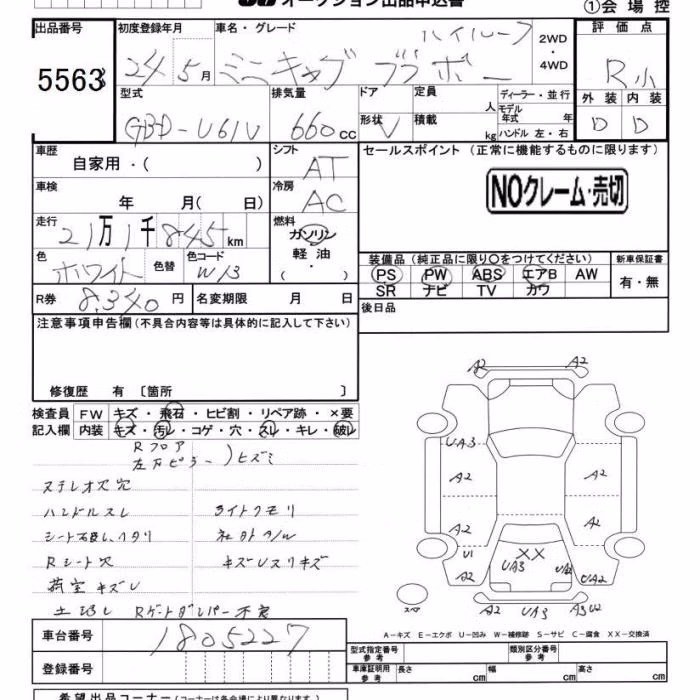 オークション出品申込書 ①会場控
出品番号 初度登録年月 車名・グレード 評価点
5563 24年5月 ミニキャブ ブラボー ハイルーフ 2WD・4WD R小
型式 排気量 ドア 定員 人 ディーラー・並行 外装 内装
GBD-U61V 660cc 形状 V 積載 kg モデル年式 年式 ハンドル 左・右 D D
車歴 シフト セールスポイント (正常に機能するものに限ります)
自家用・( ) AT
車検 冷房 NOクレーム・売切
年 月( 日) AC
走行 燃料
21万1千845km ガソリン
色 色替 色コード 軽油・ 装備品(純正品に限り○をつけてください) 新車保証書
ホワイト W13 ( ) PS PW ABS エアB AW 有・無
SR ナビ TV カワ
R券 8,340円 名変期限 月 日 後日品
注意事項申告欄(不具合内容等は具体的に記入して下さい)
修復歴 有 〔箇所 〕
検査員 FW キズ・飛石・ヒビ割・リペア跡・×要
記入欄 内装 キズ・汚レ・コゲ・穴・スレ・キレ・破レ
Rフロア
左万ピラー )ヒズミ
ステレオ穴
ハンドルスレ ライトクモリ
シート汚レ、ヘタリ 社外アルW
Rシート穴 キズレスリキズ
荷室キズレ
土場し Rゲートダンパー不良
A2 A2
UA3
A2 A2
A2 A2
U1 XX
A2 UA3 UA2 CUA2
A2 UA3 A3 U2
スペア
A-キズ E-エクボ U-凹み W-補修跡 S-サビ C-腐食 XX-交換済
車台番号 1805227
型式指定番号 参考 類別区分番号 参考
登録番号 車庫証明用 参考 長さ cm 幅 cm 高さ cm
希望出品コーナー(コーナーは各会場により異なります。)